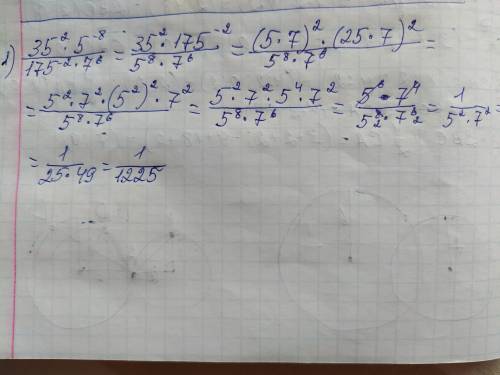 2) (35² · 5⁻⁸)/(175⁻² · 7⁶) = (35² · 175⁻²)/(5⁸ · 7⁶) = ((5·7)² · (25·7)²)/(5⁸ · 7⁶) =
= (5² · 7² · (5²)² · 7²)/(5⁸ · 7⁶) = (5² · 7² · 5⁴ · 7²)/(5⁸ · 7⁶) = (5⁶ · 7⁴)/(5⁸₂ · 7⁶₂) = 1/(5² · 7²) =
= 1/(25·49) = 1/1225